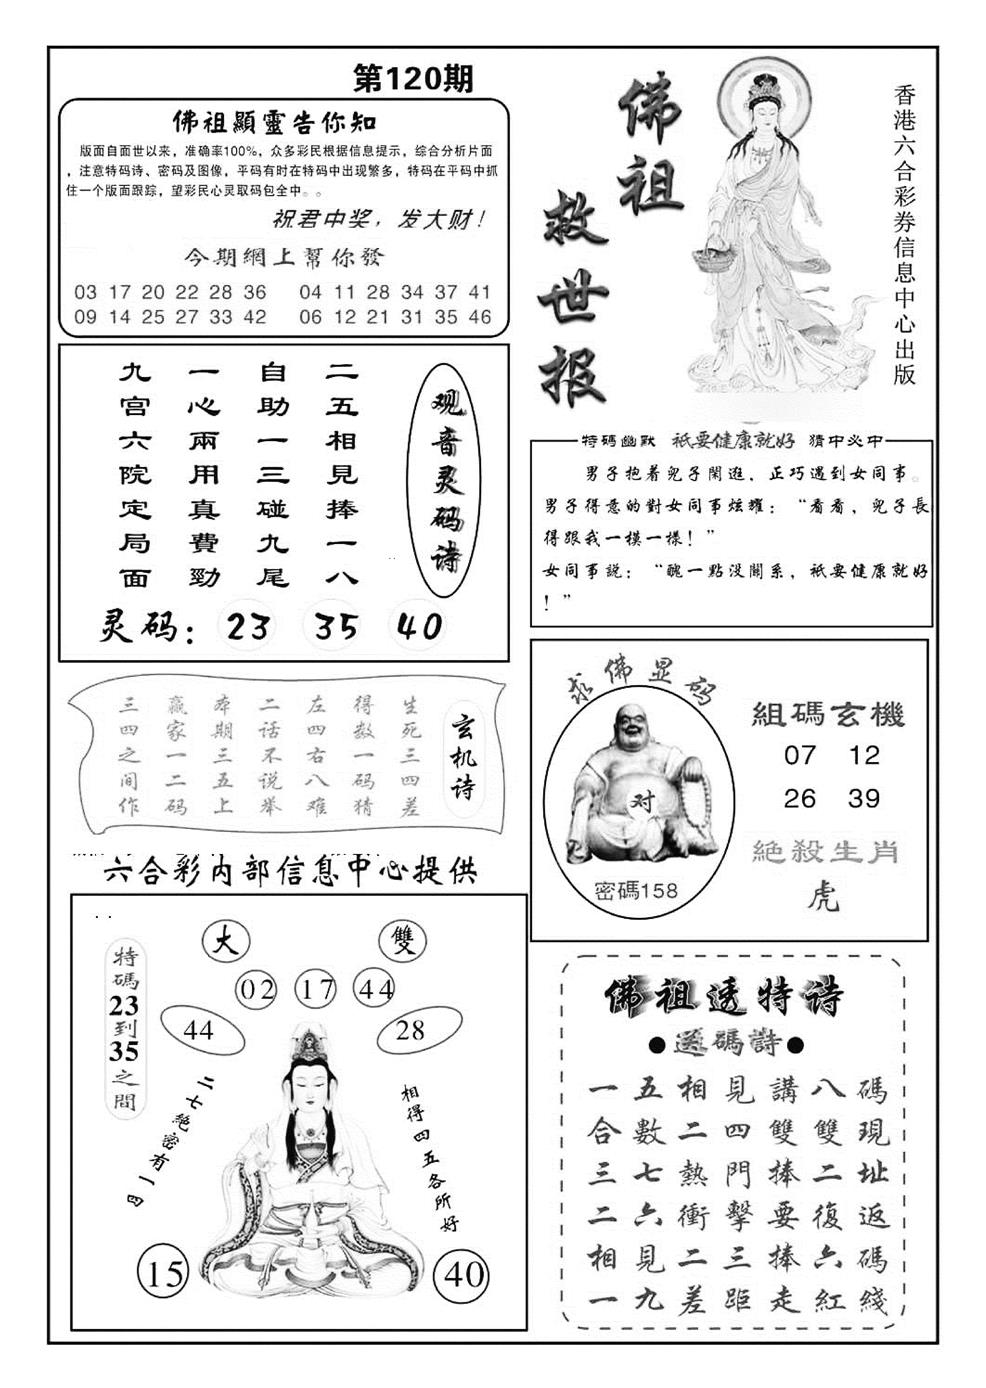 第120期
佛祖顯靈告你知
版面自面世以来，准确率100%，众多彩民根据信息提示，综合分析片面
，注意特码诗、密码及图像，平码有时在特码中出现繁多，特码在平码中抓
住一个版面跟踪，望彩民心灵取码包全中。。
祝君中奖，发大财！
今期網上幫你發
03 17 20 22 28 36 04 11 28 34 37 41
09 14 25 27 33 42 06 12 21 31 35 46
佛祖
救世报
香港六合彩券信息中心出版
观音灵码诗
二五相見捧一八
自助一三碰九尾
一心兩用真費勁
九宫六院定局面
灵码：23 35 40
特碼幽默 祇要健康就好 猜中必中
男子抱着兒子閑逛，正巧遇到女同事。
男子得意的對女同事炫耀：“看看，兒子長
得跟我一模一樣！”
女同事説：“醜一點没關系，祇要健康就好
！”
玄机诗
生死三四差
得数一码猜
左四右八难
二话不说举
本期三五上
赢家一二码
三四之间作
求佛显码
对
密碼158
組碼玄機
07 12
26 39
絶殺生肖
虎
六合彩内部信息中心提供
特碼23到35之間
大
雙
02 17 44
44
28
二七絶密有一四
相得四五各所好
15
40
佛祖透特诗
●送碼詩●
一五相見講八碼
合數二四雙雙現
三七熱門捧二址
二六衝擊要復返
相見二三捧六碼
一九差距走紅綫